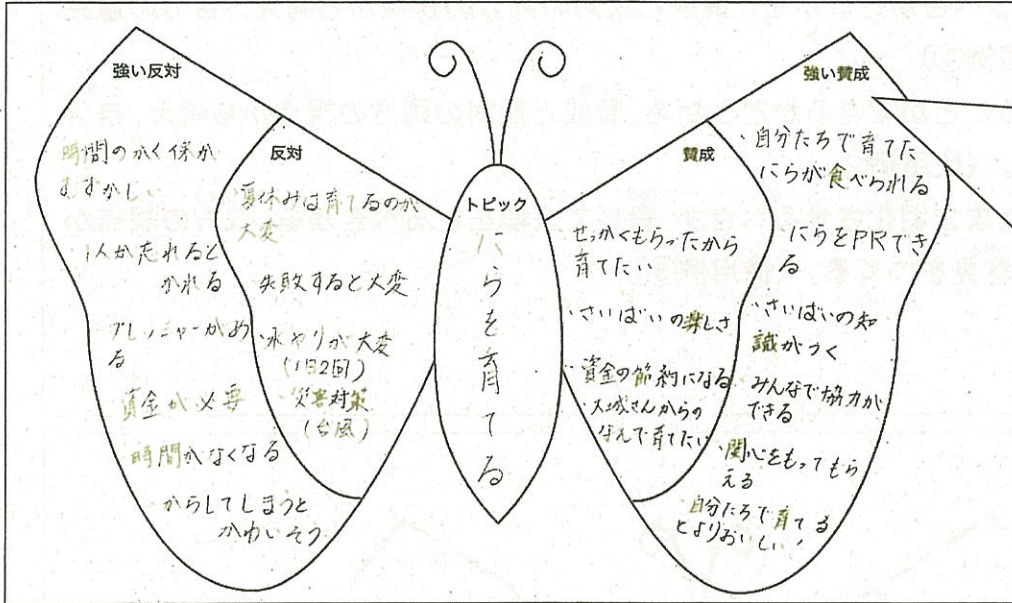 強い反対
時間のかく保が
むずかしい
1人が忘れると
かれる
プレッシャーがあ
る
資金が必要
時間がなくなる
からしてしまうと
かわいそう
反対
夏休みは育てるのが
大変
失敗すると大変
水やりが大変
(1日2回)
災害対策
(台風)
トピック
にらを育てる
賛成
せっかくもらったから
育てたい
・さいばいの楽しさ
・資金の節約になる
・大城さんからの
なんで育てたい
強い賛成
・自分たちで育てた
にらが食べられる
・にらをPRでき
る
・さいばいの知
識がつく
みんなで協力が
できる
・関心をもってもら
える
自分たちで育てる
とよりおいしい!